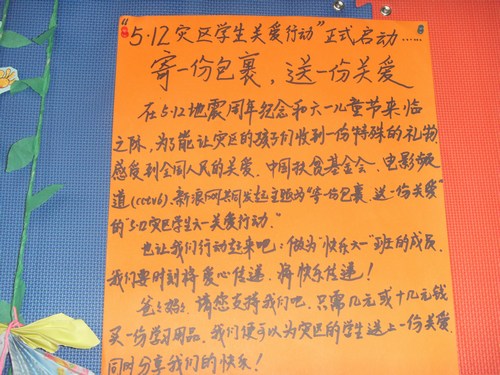 “5·12灾区学生关爱行动”正式启动……
寄一份包裹，送一份关爱
在5.12地震周年纪念和六一儿童节来临
之际，为了能让灾区的孩子们收到一份特殊的礼物，
感受到全国人民的关爱，中国扶贫基金会、电影频
道(cctv6)、新浪网共同发起主题为“寄一份包裹，送一份关爱”
的“5.12灾区学生六一关爱行动.”
也让我们行动起来吧：做为“快乐六一”班的成员，
我们要时刻将爱心传递，将快乐传递！
爸爸妈妈，请您支持我们吧，只需几元或十几元钱
买一份学习用品，我们便可以为灾区的学生送上一份关爱，
同时分享我们的快乐！